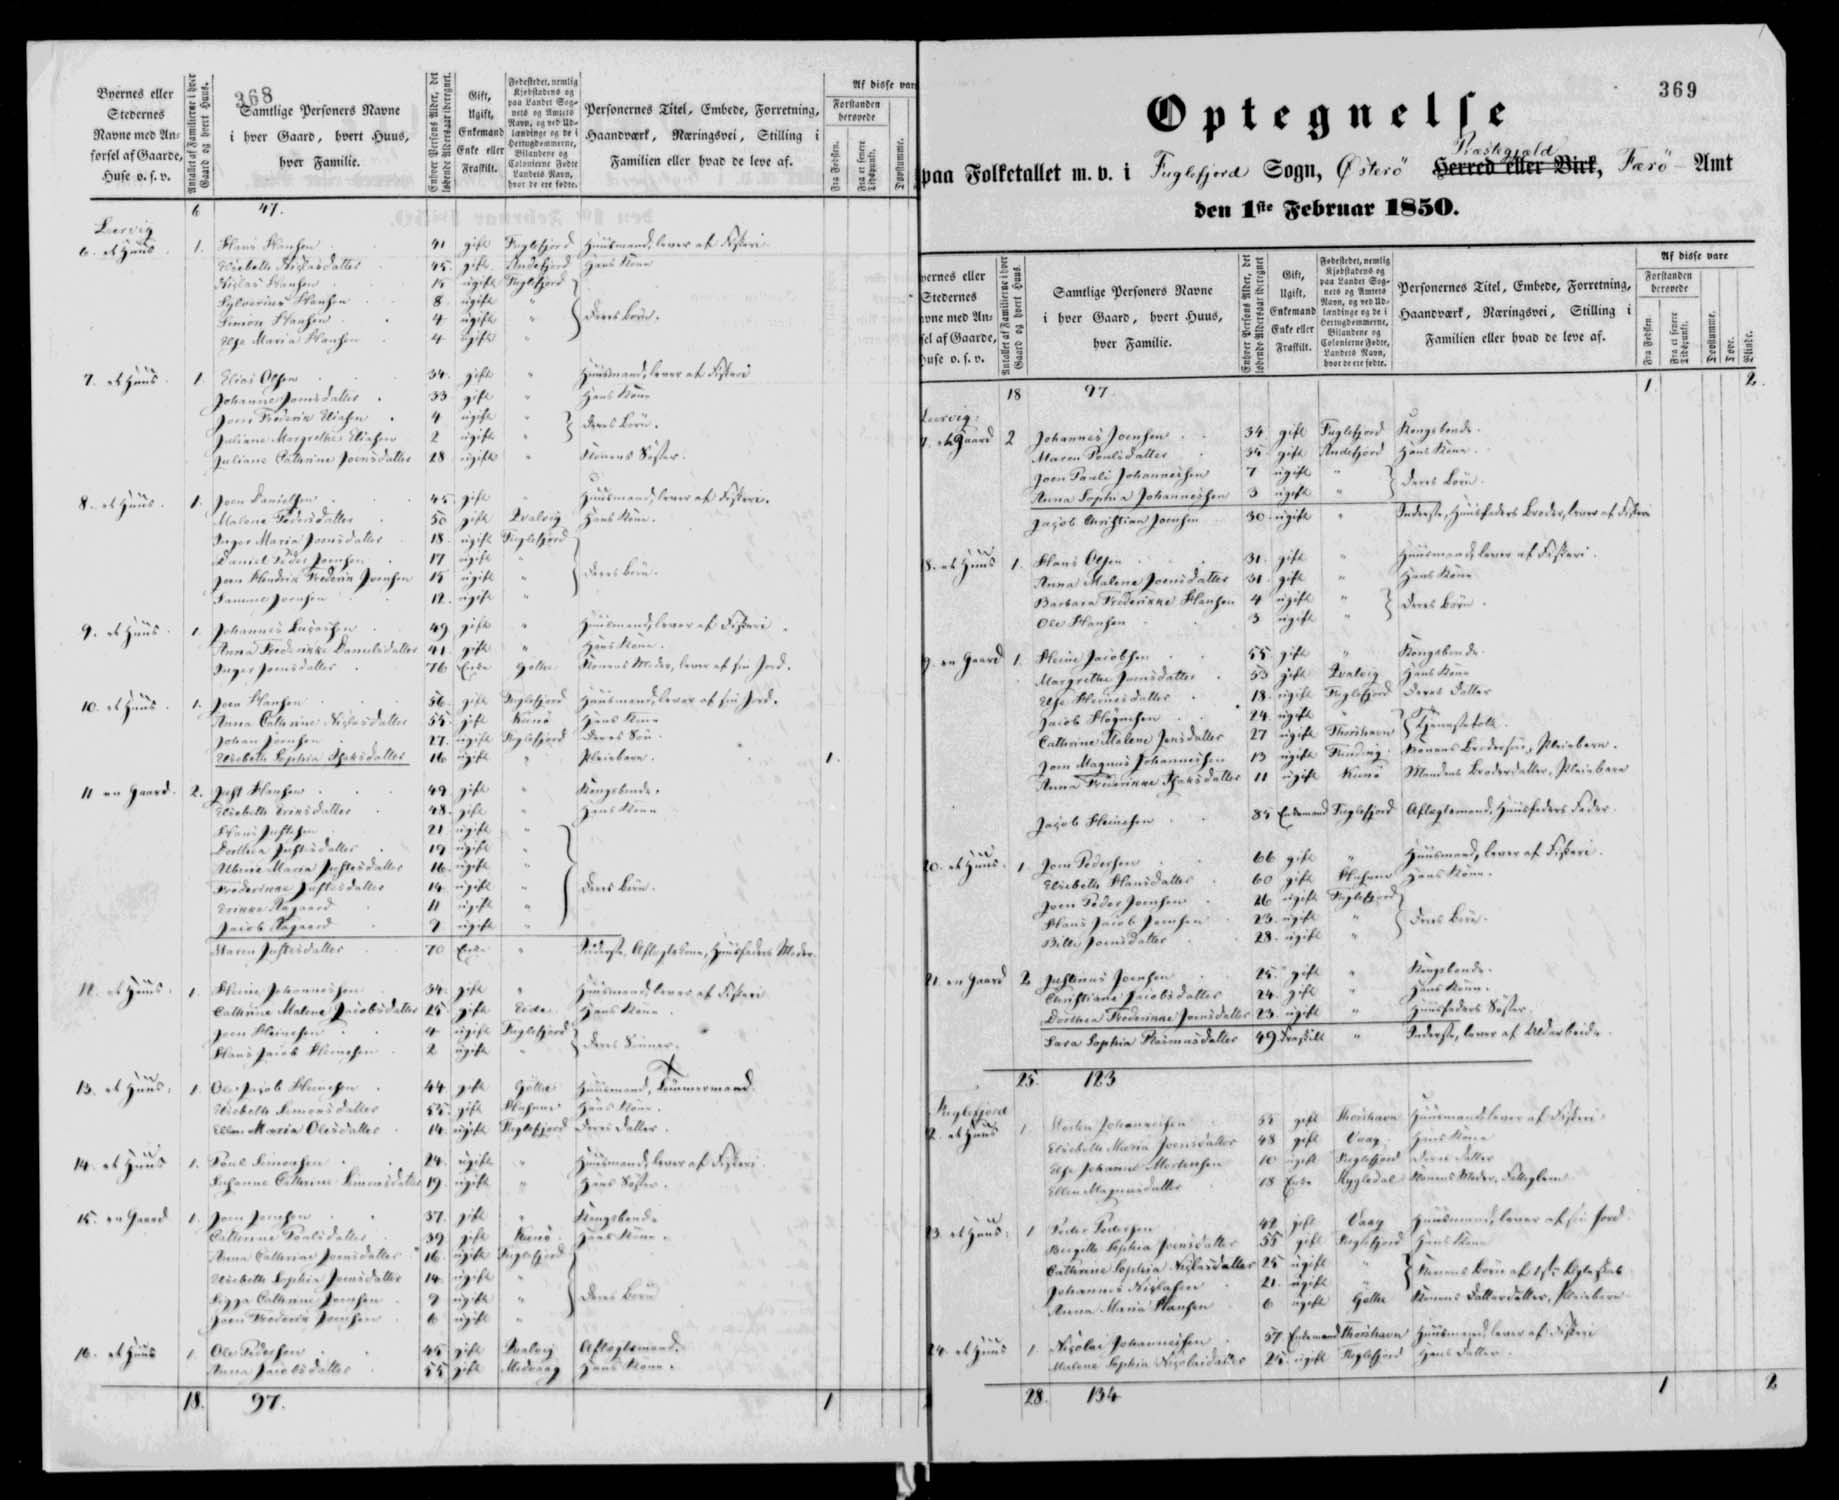 368
Byernes eller Stedernes Navne med Anførsel af Gaarde, Huse o. s. v.
Antallet af Familierne i hver Gaard og hvert Huus.
Samtlige Personers Navne i hver Gaard, hvert Huus, hver Familie.
Enhver Persons Alder, det løbende Aldersaar iberegnet.
Gift, Ugift, Enkemand Enke eller Fraskilt.
Personernes Titel, Embede, Forretning, Haandværk, Næringsvei, Stilling i Familien eller hvad de leve af.
Af disse vare
Forstanden berøvede
Fra Fødslen.
Fra et senere Tidspunkt.
Døvstumme.
6 47.
Leervig
6. et Huus 1. Hans Hansen 41 gift Fuglefjord Huusmand, lever af Fiskeri
45 gift Andefjord Hans Kone
Niclas Hansen 15 ugift Fuglefjord
Sylverius Hansen 8 ugift "
Simon Hansen 4 ugift " Deres Børn.
Else Maria Hansen 4 ugift "
7. et Huus 1. Elias Olsen 34 gift " Huusmand, lever af Fiskeri
Johanne Joensdatter 33 gift " Hans Kone
Joen Frederik Eliasen 4 ugift "
Juliane Margrethe Eliasen 2 ugift " Deres Børn.
Juliane Cathrine Joensdatter 28 ugift " Konens Søster.
8. et Huus 1. Joen Danielsen 45 gift " Huusmand, lever af Fiskeri.
Malene Pedersdatter 50 gift Qvalvig Hans Kone.
Inger Maria Joensdatter 18 ugift Fuglefjord
Daniel Peder Joensen 17 ugift "
Joen Hendrik Frederik Joensen 15 ugift " Deres Børn.
Joensen 12 ugift "
9. et Huus 1. Johannes 49 gift " Huusmand, lever af Fiskeri
Anna Frederikke Danielsdatter 41 gift " Hans Kone.
Inger Joensdatter 76 Enke Gøthe Konens Moder, lever af sin Jord.
10. et Huus 1. Joen Hansen 56 gift Fuglefjord Huusmand, lever af sin Jord.
Anna Cathrine Niclasdatter 55 gift Kunø Hans Kone
Johan Joensen 27 ugift Fuglefjord Deres Søn
Elsebeth Sophia Isaksdatter 16 ugift " Pleiebarn. 1.
11 en Gaard 2. Just Hansen 49 gift " Kongsbonde.
Elsebeth 48 gift " Hans Kone
Hans Justesen 21 ugift "
Dorthea Justesdatter 19 ugift "
Maria Justesdatter 16 ugift "
Frederikke Justesdatter 14 ugift " Deres Børn.
11 ugift "
Jacob 9 ugift "
Maren Justesdatter 70 Enke " Inderste, Aftægtskone, Huusfaders Moder.
12. et Huus 1. Heine Johannessen 34 gift " Huusmand, lever af Fiskeri
Cathrine Malene Jacobsdatter 25 gift Eide Hans Kone
Joen Heinesen 4 ugift Fuglefjord
Hans Jacob Heinesen 2 ugift " Deres Sønner.
13. et Huus 1. Ole Jacob Heinesen 44 gift Gøthe Huusmand, Tømmermand.
Elsebeth Simonsdatter 55 gift Hans Kone.
Ellen Maria Olesdatter 14 ugift Fuglefjord Deres Datter.
14. et Huus 1. Simonsen 24 ugift " Huusmand, lever af Fiskeri
Susanne Cathrine Simonsdatter 19 ugift " Hans Søster.
15. en Gaard 1. Joen Joensen 37 gift " Kongsbonde
Cathrine Poulsdatter 39 gift Kunø Hans Kone
Anna Cathrine Joensdatter 16 ugift Fuglefjord
Elsebeth Sophia Joensdatter 14 ugift "
Sigga Cathrine Joensen 9 ugift " Deres Børn
Joen Frederik Joensen 6 ugift "
16. et Huus 1. Ole Pedersen 45 gift Qvalvig Aftægtsmand.
Anna Jacobsdatter 55 gift Midvaag Hans Kone.
18. 97. 1
369
Optegnelse
paa Folketallet m. v. i Fuglefjord Sogn, Østerø Herred eller Birk, Præstegjeld Færø Amt
den 1ste Februar 1850.
Samtlige Personers Navne i hver Gaard, hvert Huus, hver Familie.
Gift, Ugift, Enkemand Enke eller Fraskilt.
Personernes Titel, Embede, Forretning, Haandværk, Næringsvei, Stilling i Familien eller hvad de leve af.
Af disse vare
Forstanden berøvede
Fra Fødslen.
Fra et senere Tidspunkt.
Døvstumme.
Døve.
Blinde.
18 97 1. 2.
Leervig.
Gaard 2 Johannes Joensen 34 gift Fuglefjord Kongsbonde.
Maren Poulsdatter 35 gift Andefjord Hans Kone.
Joen Pauli Johannessen 7 ugift "
Anna Sophia Johannessen 3 ugift " Deres Børn.
Jacob Christian Joensen 30 ugift " Inderste, Huusfaders Broder, lever af Fiskeri
8. et Huus 1. Hans Olsen 31 gift " Huusmand, lever af Fiskeri.
Anna Malene Joensdatter 31 gift " Hans Kone
Barbara Frederikke Hansen 4 ugift " Deres Børn.
Ole Hansen 3 ugift "
9. en Gaard 1. Heine Jacobsen 55 gift " Kongsbonde
Margrethe Joensdatter 53 gift Qvalvig Hans Kone
Else Heinesdatter 18 ugift Fuglefjord Deres Datter
Jacob 24 ugift "
Cathrine Malene Jensdatter 27 ugift Thorshavn Tjenestefolk.
Joen Magnus Johannessen 13 ugift Funding Konens Brodersøn, Pleiebarn.
Anna Frederikke Isaksdatter 11 ugift Kunø Mandens Broderdatter, Pleiebarn
Jacob Heinesen 85 Enkemand Fuglefjord Aftægtsmand, Huusfaders Fader.
20. et Huus 1. Joen Pedersen 66 gift " Huusmand, lever af Fiskeri.
Elsebeth Hansdatter 60 gift Hans Kone.
Joen Peder Joensen 26 ugift Fuglefjord
Hans Jacob Joensen 23 ugift " Deres Børn.
Joensdatter 28 ugift "
21. en Gaard 2. Justinus Joensen 25 gift " Kongsbonde.
Christiane Jacobsdatter 24 gift " Hans Kone.
Dorthea Frederikke Joensdatter 23 ugift " Huusfaders Søster.
Sara Sophia Rasmusdatter 49 Fraskilt " Inderste, lever af Uldarbeide.
25. 123
Fuglefjord
2. et Huus 1 Morten Johannessen 55 gift Thorshavn Huusmand, lever af Fiskeri.
Elisabeth Maria Joensdatter 48 gift Vaag Hans Kone
Else Johanne Mortensen 10 ugift Fuglefjord Deres Datter
Ellen Magnusdatter 78 Enke Konens Moder, Fattiglem.
23. et Huus 1 Peder Pedersen 42 gift Vaag Huusmand, lever af sin Jord
Sophia Joensdatter 55 gift Fuglefjord Hans Kone
Cathrine Sophia Niclasdatter 25 ugift "
Johannes Niclasen 21 ugift " Konens Børn af 1ste Ægteskab
Anna Maria Hansen 6 ugift Gøthe Konens Datterdatter, Pleiebarn
24. et Huus 1. Nicolai Johannessen 57 Enkemand Thorshavn Huusmand, lever af Fiskeri
Malene Sophia Nicolaidatter 25 ugift Fuglefjord Hans Datter.
28. 134 1 2